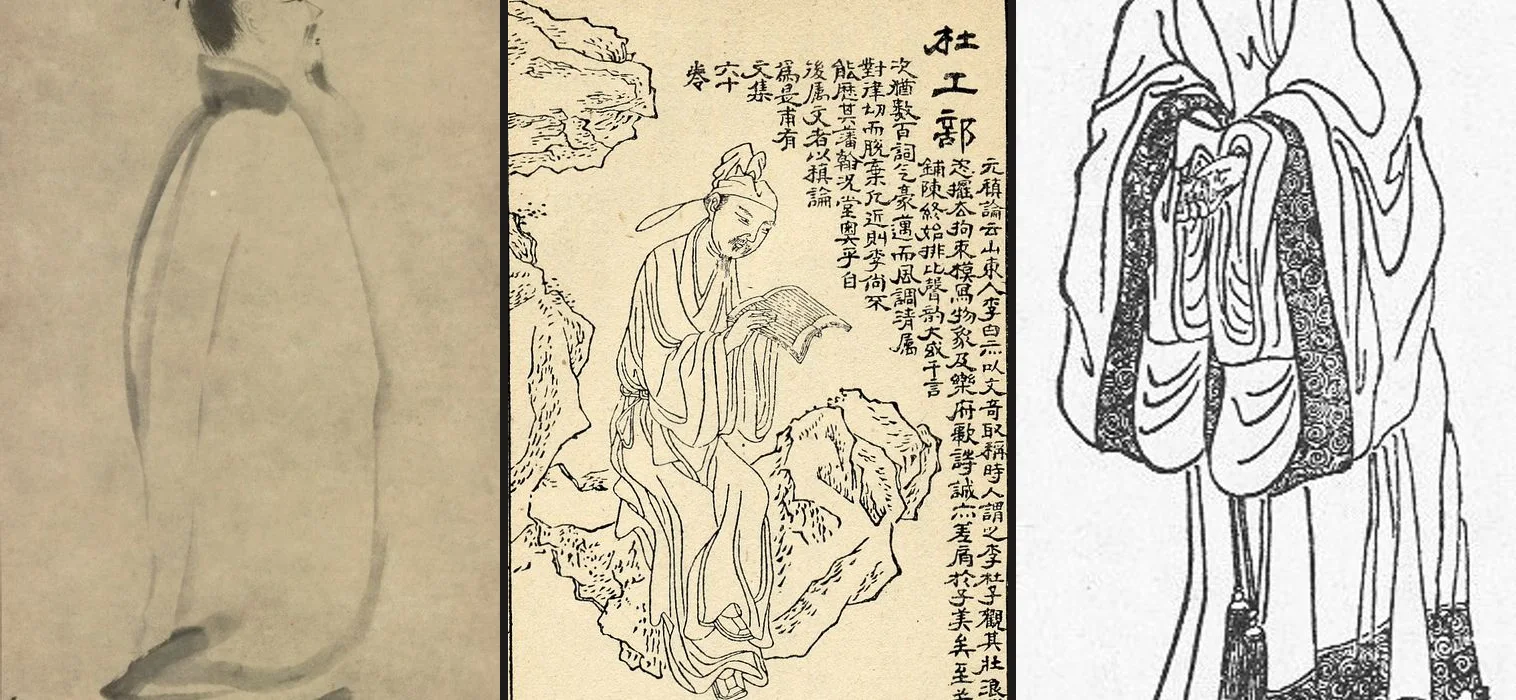 杜工部
元稹論云山東人李白亦以文奇取稱時人謂之李杜予觀其壯浪
恣擺去拘束模寫物象及樂府歌詩誠亦差肩於子美矣至若
鋪陳終始排比聲韵大或千言
次猶數百詞气豪邁而風調清属
對律切而脫棄凡近則李尚不
能歷其藩翰况堂奧乎自
後属文者以稹論
為是甫有
文集
六十
卷